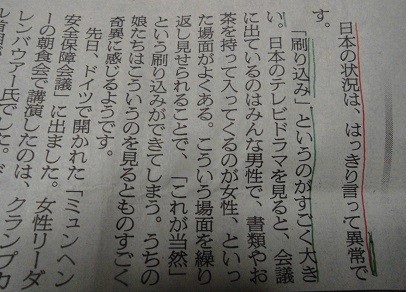 日本の状況は、はっきり言って異常で
す。
「刷り込み」というのがすごく大き
い。日本のテレビドラマを見ると、会議
に出ているのはみんな男性で、書類やお
茶を持って入ってくるのが女性、といっ
た場面がよくある。こういう場面を繰り
返し見せられることで、「これが当然」
という刷り込みができてしまう。うちの
娘たちはこういうのを見るとものすごく
奇異に感じるようです。
先日、ドイツで開かれた「ミュンヘン
安全保障会議」に出ました。女性リーダ
ーの朝食会で講演したのは、クランプカ
レンバウアー氏でした。ド